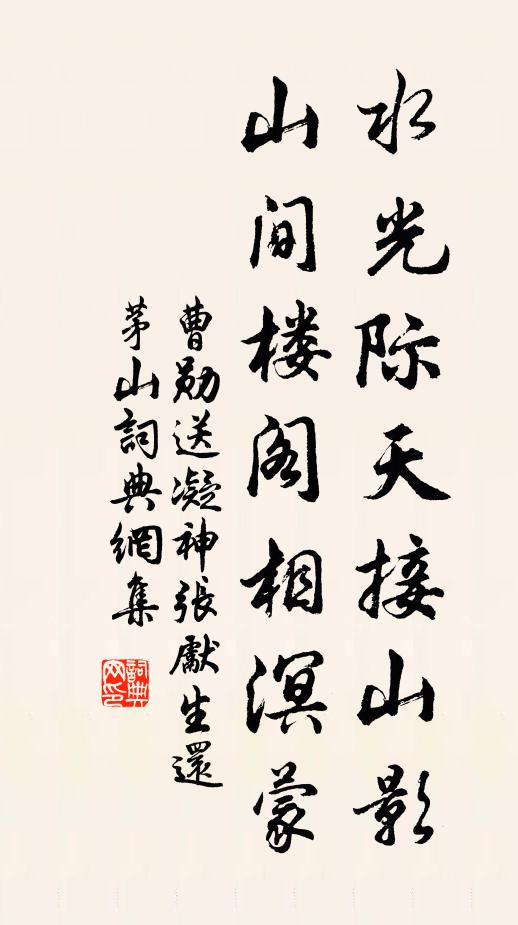 水光际天接山影
山间楼阁相溟蒙
曹勋送凝神张献生還
茅山詞典網集
詞典网印